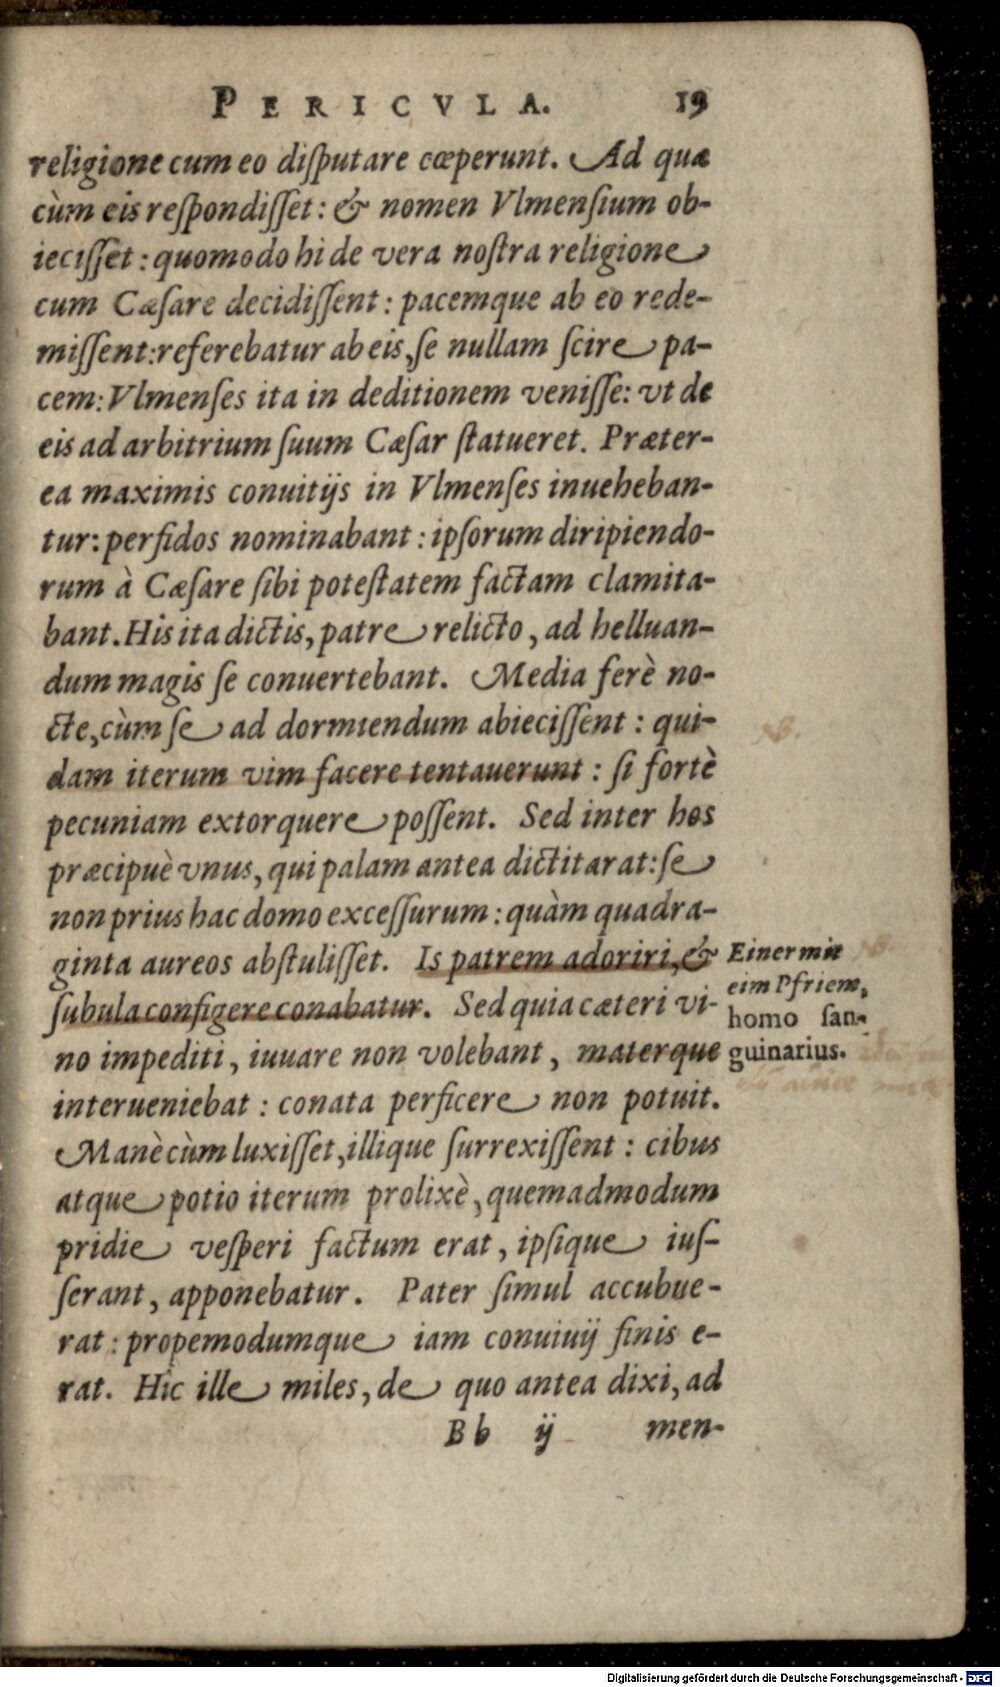 PERICVLA. 19
religione cum eo diſputare cœperunt. Ad quæ
cùm eis reſpondiſſet: & nomen Vlmenſium ob-
ieciſſet: quomodo hi de vera noſtra religione
cum Cæſare decidiſſent: pacemque ab eo rede-
miſſent: referebatur ab eis, ſe nullam ſcire pa-
cem: Vlmenſes ita in deditionem veniſſe: vt de
eis ad arbitrium ſuum Cæſar ſtatueret. Præter-
ea maximis conuitijs in Vlmenſes inueheban-
tur: perfidos nominabant: ipſorum diripiendo-
rum à Cæſare ſibi poteſtatem factam clamita-
bant. His ita dictis, patre relicto, ad helluan-
dum magis ſe conuertebant. Media ferè no-
cte, cùm ſe ad dormiendum abieciſſent: qui-
dam iterum vim facere tentauerunt: ſi fortè
pecuniam extorquere poſſent. Sed inter hos
præcipuè vnus, qui palam antea dictitarat: ſe
non prius hac domo exceſſurum: quàm quadra-
ginta aureos abſtuliſſet. Is patrem adoriri, &
ſubula configere conabatur. Sed quia cæteri vi-
no impediti, iuuare non volebant, materque
interueniebat: conata perficere non potuit.
Manè cùm luxiſſet, illique ſurrexiſſent: cibus
atque potio iterum prolixè, quemadmodum
pridie veſperi factum erat, ipſique iuſ-
ſerant, apponebatur. Pater ſimul accubue-
rat: propemodumque iam conuiuij finis e-
rat. Hic ille miles, de quo antea dixi, ad
Bb ij men-
Einer mit
eim Pfriem,
homo ſan-
guinarius.
NB.
Digitalisierung gefördert durch die Deutsche Forschungsgemeinschaft - DFG